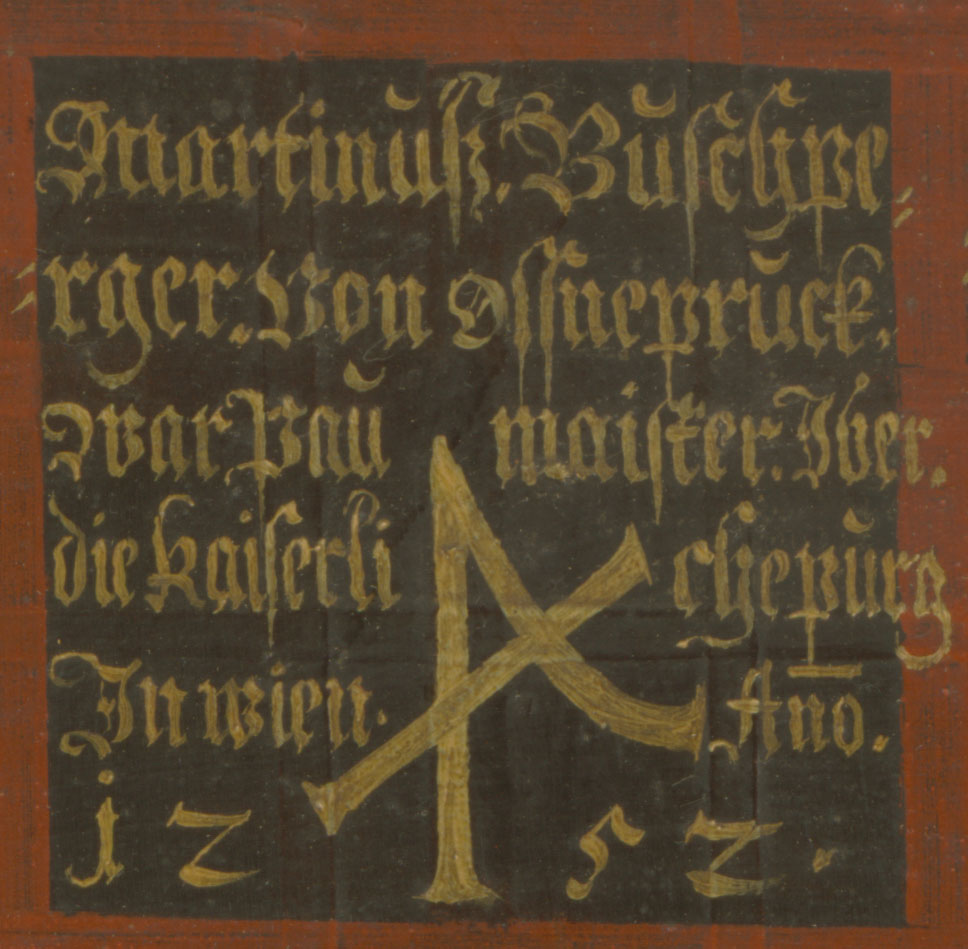 Martinus. Buschpe=
=rger. Von Ossnepruck.
War Pau maister. Iber.
die kaiserli chepurg
In wien. Año.
1252.